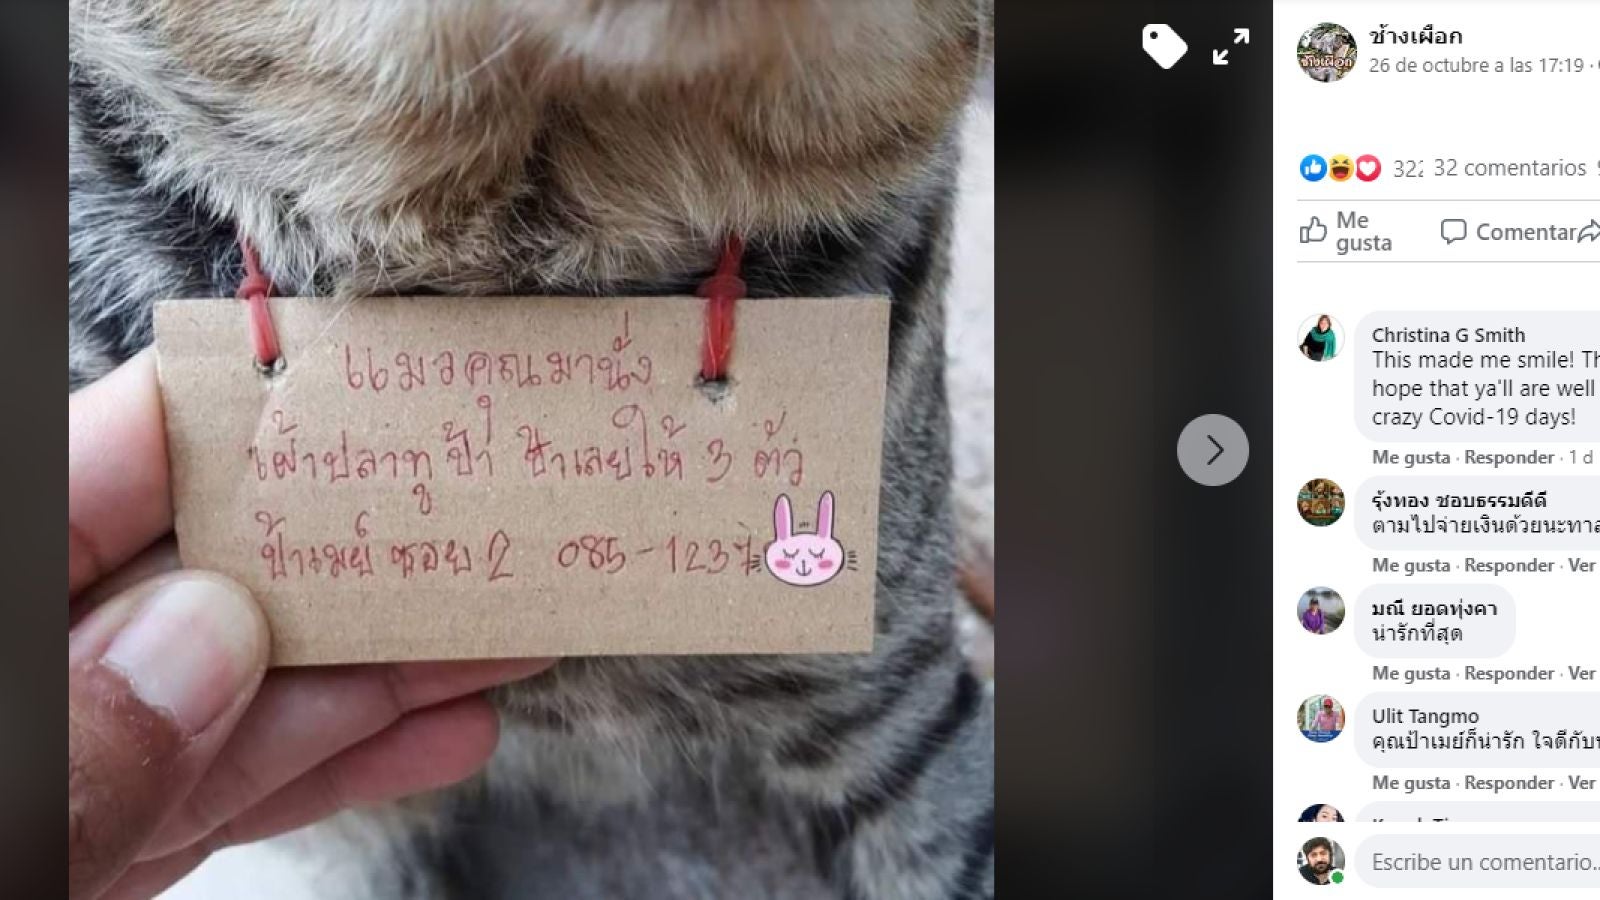 ช้างเผือก
26 de octubre a las 17:19 ·
322 32 comentarios
Me gusta
Comentar
แมวคุณมานั่ง
เฝ้าปลาทูป้า ป้าเลยให้ 3 ตัว
ป้าเมย์ ซอย 2 085-1237
Christina G Smith
This made me smile!
hope that ya'll are well
crazy Covid-19 days!
Me gusta · Responder · 1 d
รุ้งทอง ชอบธรรมดีดี
ตามไปจ่ายเงินด้วยนะ
Me gusta · Responder · Ver
มณี ยอดทุ่งคา
น่ารักที่สุด
Me gusta · Responder · Ver
Ulit Tangmo
คุณป้าเมย์ก็น่ารัก ใจดีกับ
Me gusta · Responder · Ver
Escribe un comentario...